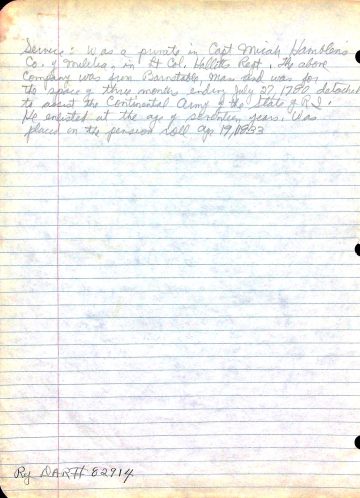 Service: Was a private in Capt Micah Hamblens
Co. of Militia, in Lt Col. Halletts Regt. The above
Company was from Barnstable, Mass and was for
the space of three months ending July 27, 1780, detached
to assist the Continental Army of the State of R.I.
He enlisted at the age of seventeen years. Was
placed on the pension roll 19, 1833
Ry DAR# 82914